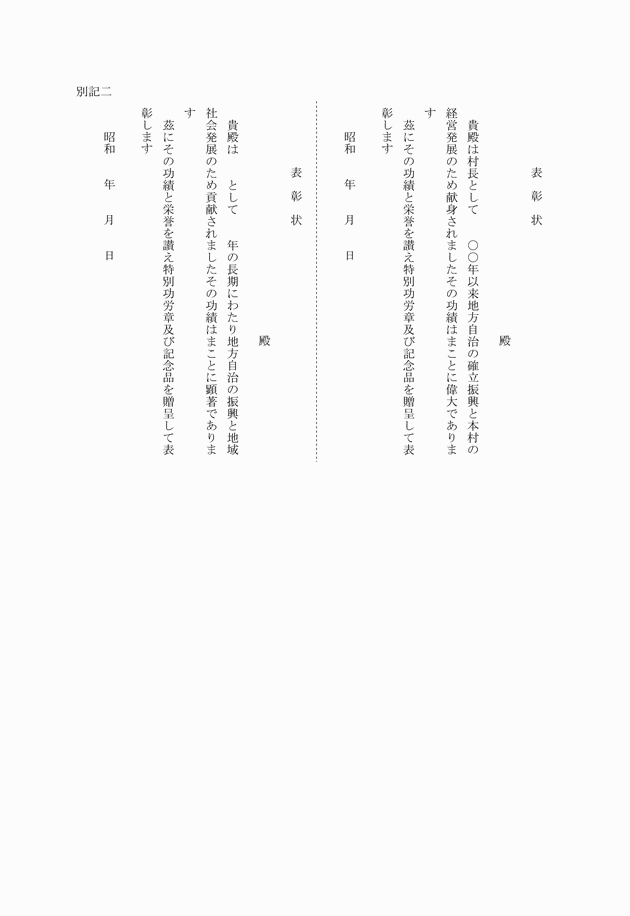 表彰状
殿
貴殿は村長として　　〇〇年以来地方自治の確立振興と本村の
経営発展のため献身されましたその功績はまことに偉大でありま
す
茲にその功績と栄誉を讃え特別功労章及び記念品を贈呈して表
彰します
昭和　　年　　月　　日
表彰状
殿
貴殿は　　として　　年の長期にわたり地方自治の振興と地域
社会発展のため貢献されましたその功績はまことに顕著でありま
す
茲にその功績と栄誉を讃え特別功労章及び記念品を贈呈して表
彰します
昭和　　年　　月　　日
別記二